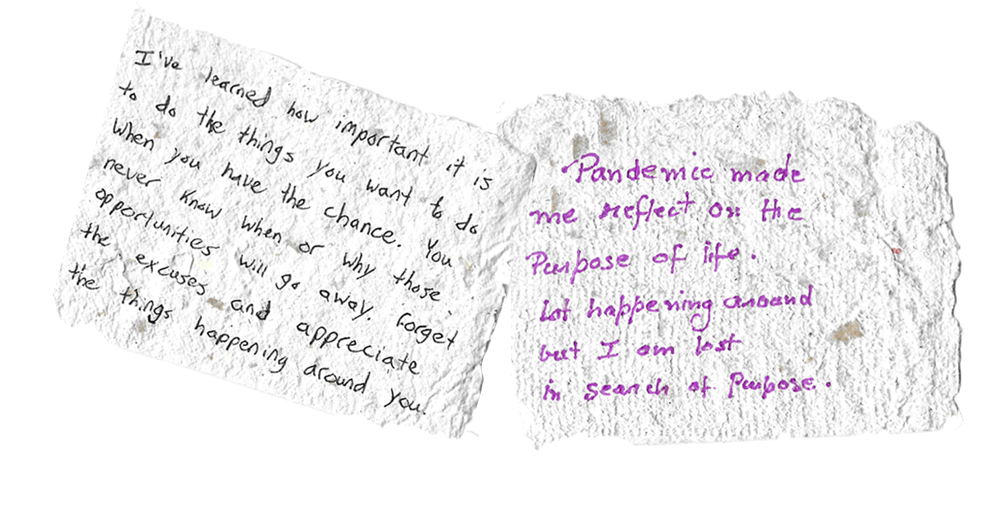 I've learned how important it is
to do the things you want to do
when you have the chance. You
never know when or why those
opportunities will go away. Forget
the excuses and appreciate
the things happening around you.
Pandemic made
me reflect on the
Purpose of life.
Lot happening around
but I am lost
in search of Purpose.